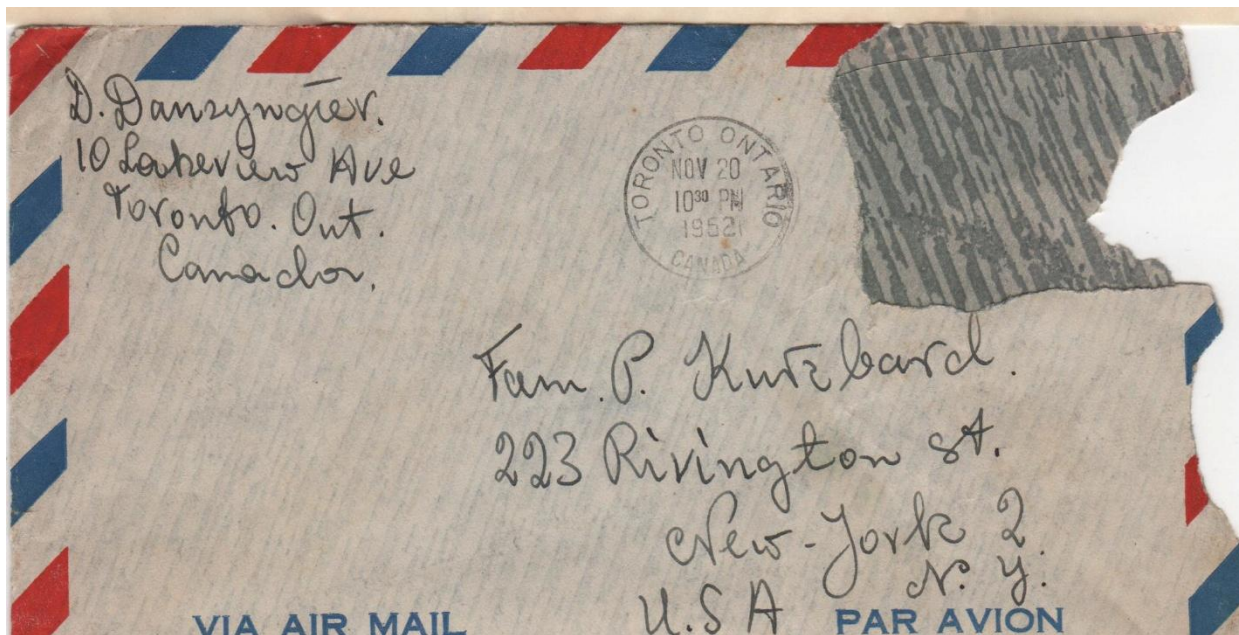 D. Danzyngier.
10 Lakeview Ave
Toronto. Ont.
Canada.
TORONTO ONTARIO
NOV 20
10³⁰ PM
1952
CANADA
Fam. P. Kurzbard.
223 Rivington st.
New-York 2.
N. Y.
U.S A
VIA AIR MAIL
PAR AVION